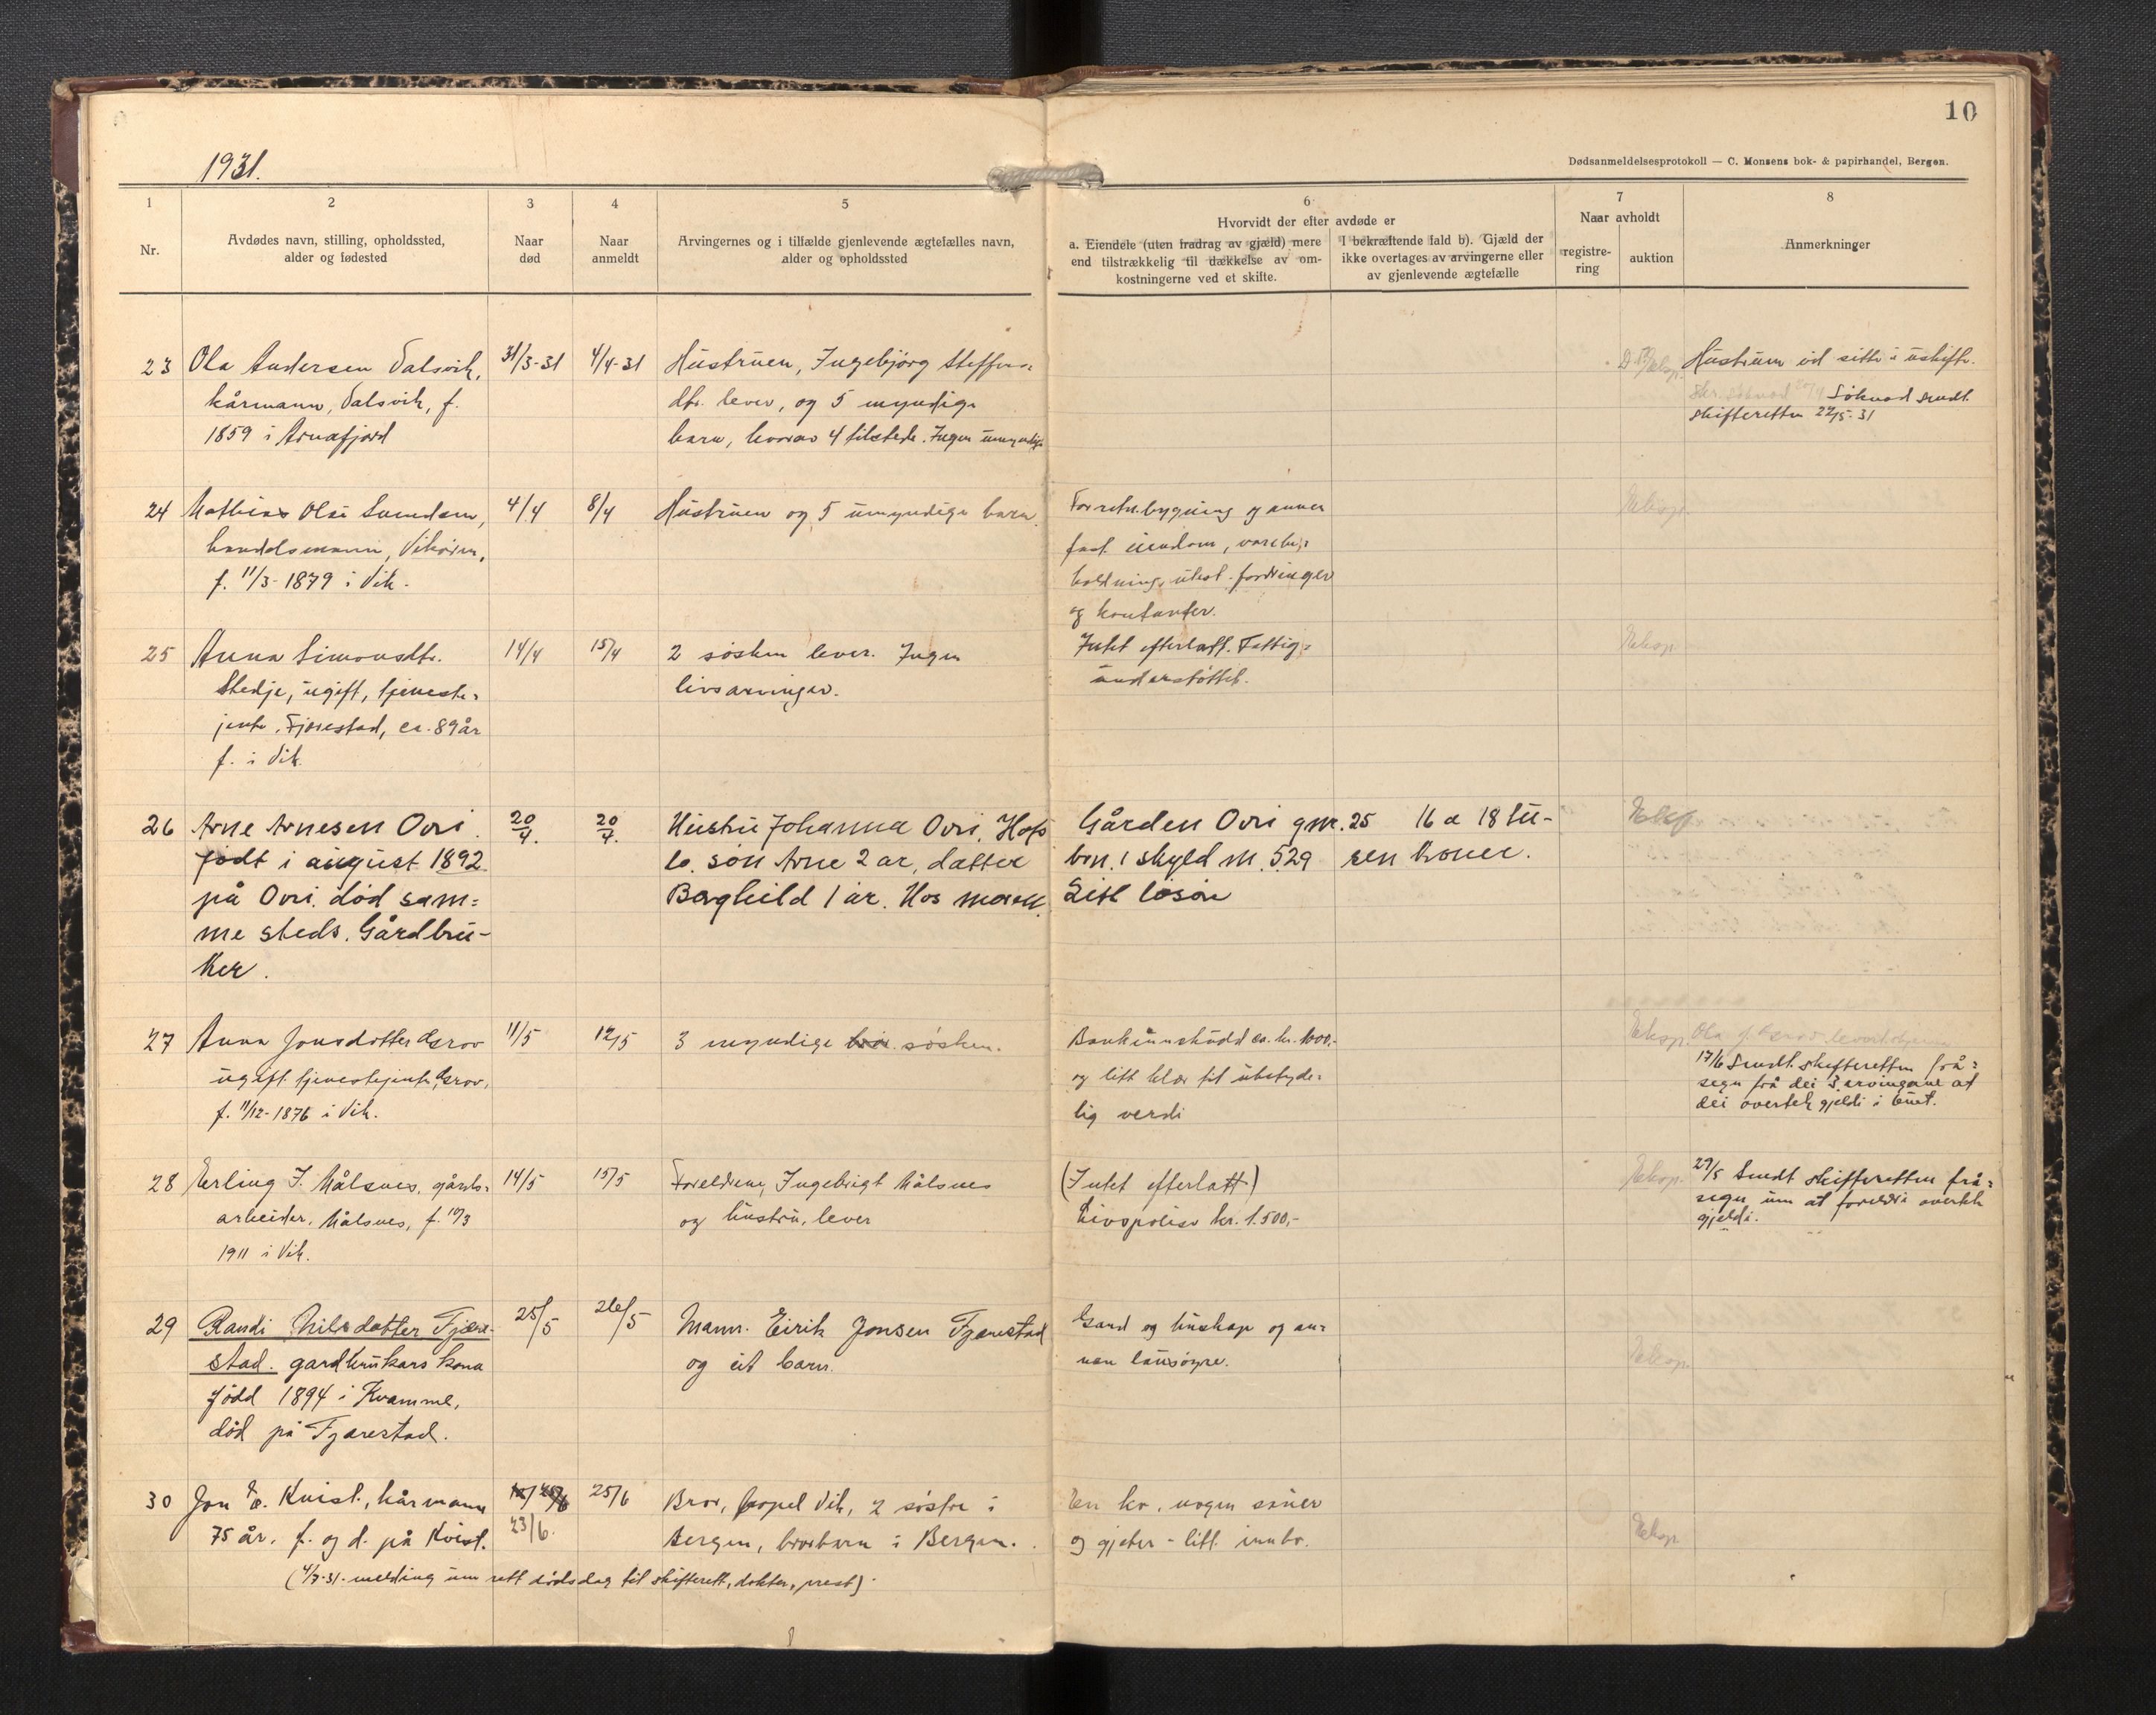 10
1931.
Dødsanmeldelsesprotokoll — C. Monsens bok- & papirhandel, Bergen.
1
Nr.
2
Avdødes navn, stilling, opholdssted,
alder og fødested
3
Naar
død
4
Naar
anmeldt
5
Arvingernes og i tilfælde gjenlevende ægtefælles navn,
alder og opholdssted
6
Hvorvidt der efter avdøde er
a. Eiendele (uten fradrag av gjæld) mere
end tilstrækkelig til dækkelse av om-
kostningerne ved et skifte.
I bekræftende fald b). Gjæld der
ikke overtages av arvingerne eller
av gjenlevende ægtefælle
7
Naar avholdt
registre-
ring
auktion
8
Anmerkninger
23
Ola Andersen Dalsvik,
kårmann, Dalsvik, f.
1859 i Arnafjord
31/3-31
4/4-31
Hustruen, Ingebjørg Steffens-
dtr. lever, og 5 myndige
barn, hvorav 4 tilstede. Ingen umyndige
Hustruen vil sitte i uskifte.
Søknad sendt
skifteretten 22/5-31
24
Mathias Olai Svendsen,
handelsmann, Vikøren,
f. 11/3-1879 i Vik.
4/4
8/4
Hustruen og 5 umyndige barn.
Forretn.bygning og annen
fast eiendom, varebe-
holdning, utest. fordringer
og kontanter.
Eksp.
25
Anna Simonsdtr.
Stedje, ugift, tjeneste-
jente, Fjærestad, ca. 89 år
f. i Vik.
14/4
15/4
2 søsken lever. Ingen
livsarvinger.
Intet efterlatt. Fattig-
understøttet.
Eksp.
26
Arne Arnesen Ovri.
født i august 1892
på Ovri. død sam-
me steds. Gårdbru-
ker.
20/4.
20/4.
Hustru Johanna Ovri, Hofs
lo. søn Arne 2 år, datter
Borghild 1 år. Hos moren.
Gården Ovri gnr. 25
brn. 1 skyld m. 5.29
Litt løsøre
16 a 18 tu-
sen kroner.
Eksp.
27
Anna Jonsdotter Grov
ugift tjenestejente, Grov,
f. 11/12-1876 i Vik.
11/5
12/5
3 myndige søsken.
Bankinnskudd ca. kr. 1000,-
og litt klær til ubetyde-
lig verdi
Eksp.
17/6 Sendt skifteretten frå-
segn frå dei 3 ervingane at
dei overtek gjeldi i buet.
28
Erling I. Målsnes, gårds-
arbeider, Målsnes, f. 10/3
1911 i Vik.
14/5
15/5
Foreldrene, Ingebrigt Målsnes
og hustru, lever
(Intet efterlatt)
Livspolise kr. 1.500,-
Eksp.
29/5 Sendt skifteretten frå-
segn um at foreldri overtek
gjeldi.
29
Randi Nilsdotter Fjære-
stad. gardbrukars kona
født 1894 i Kvamme,
død på Fjærestad.
25/5
26/5
Mann. Eirik Jonsen Fjærestad
og eit barn.
Gard og buskap og an-
nan lausøyre.
Eksp.
30
Jon O. Kvist, kårmann
75 år. f. og d. på Kvist.
23/6.
25/6
Bror, Hopel Vik, 2 søstre i
Bergen, brorbarn i Bergen.
En ko, nogen sauer
og gjeter - litt innbo.
Eksp.
(4/7-31. melding um rett dødsdag til skifterett, dokter, prest).